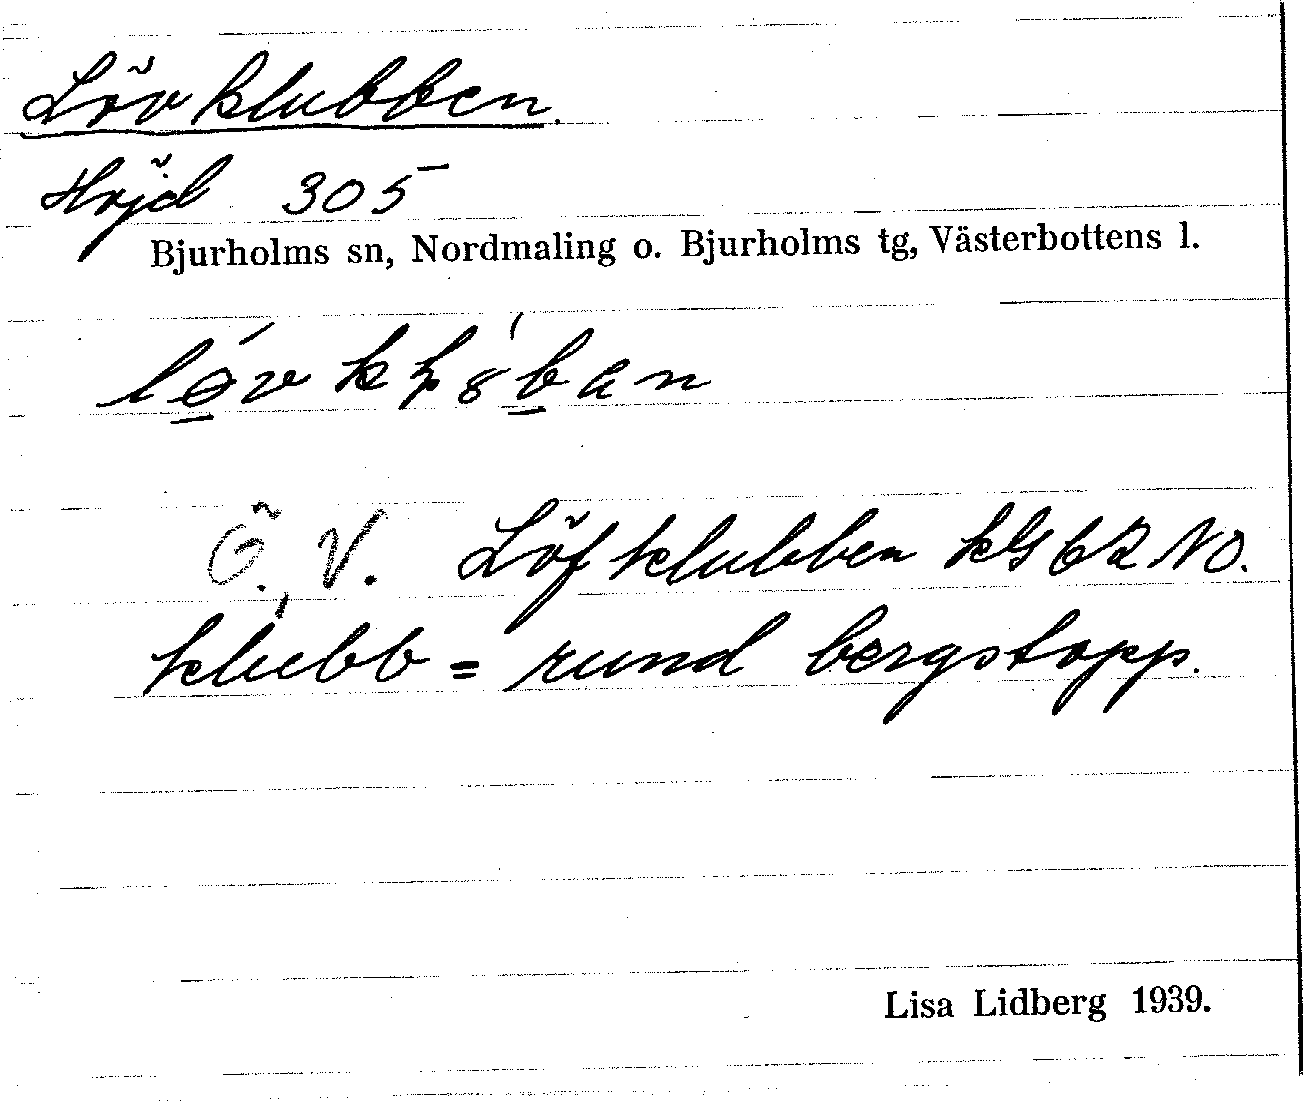 Lövklubben.
Höjd 305
Bjurholms sn, Nordmaling o. Bjurholms tg, Västerbottens l.
Ö. V. Löfklubben kbl 62 NO.
klubb = rund bergstopp.
Lisa Lidberg 1939.